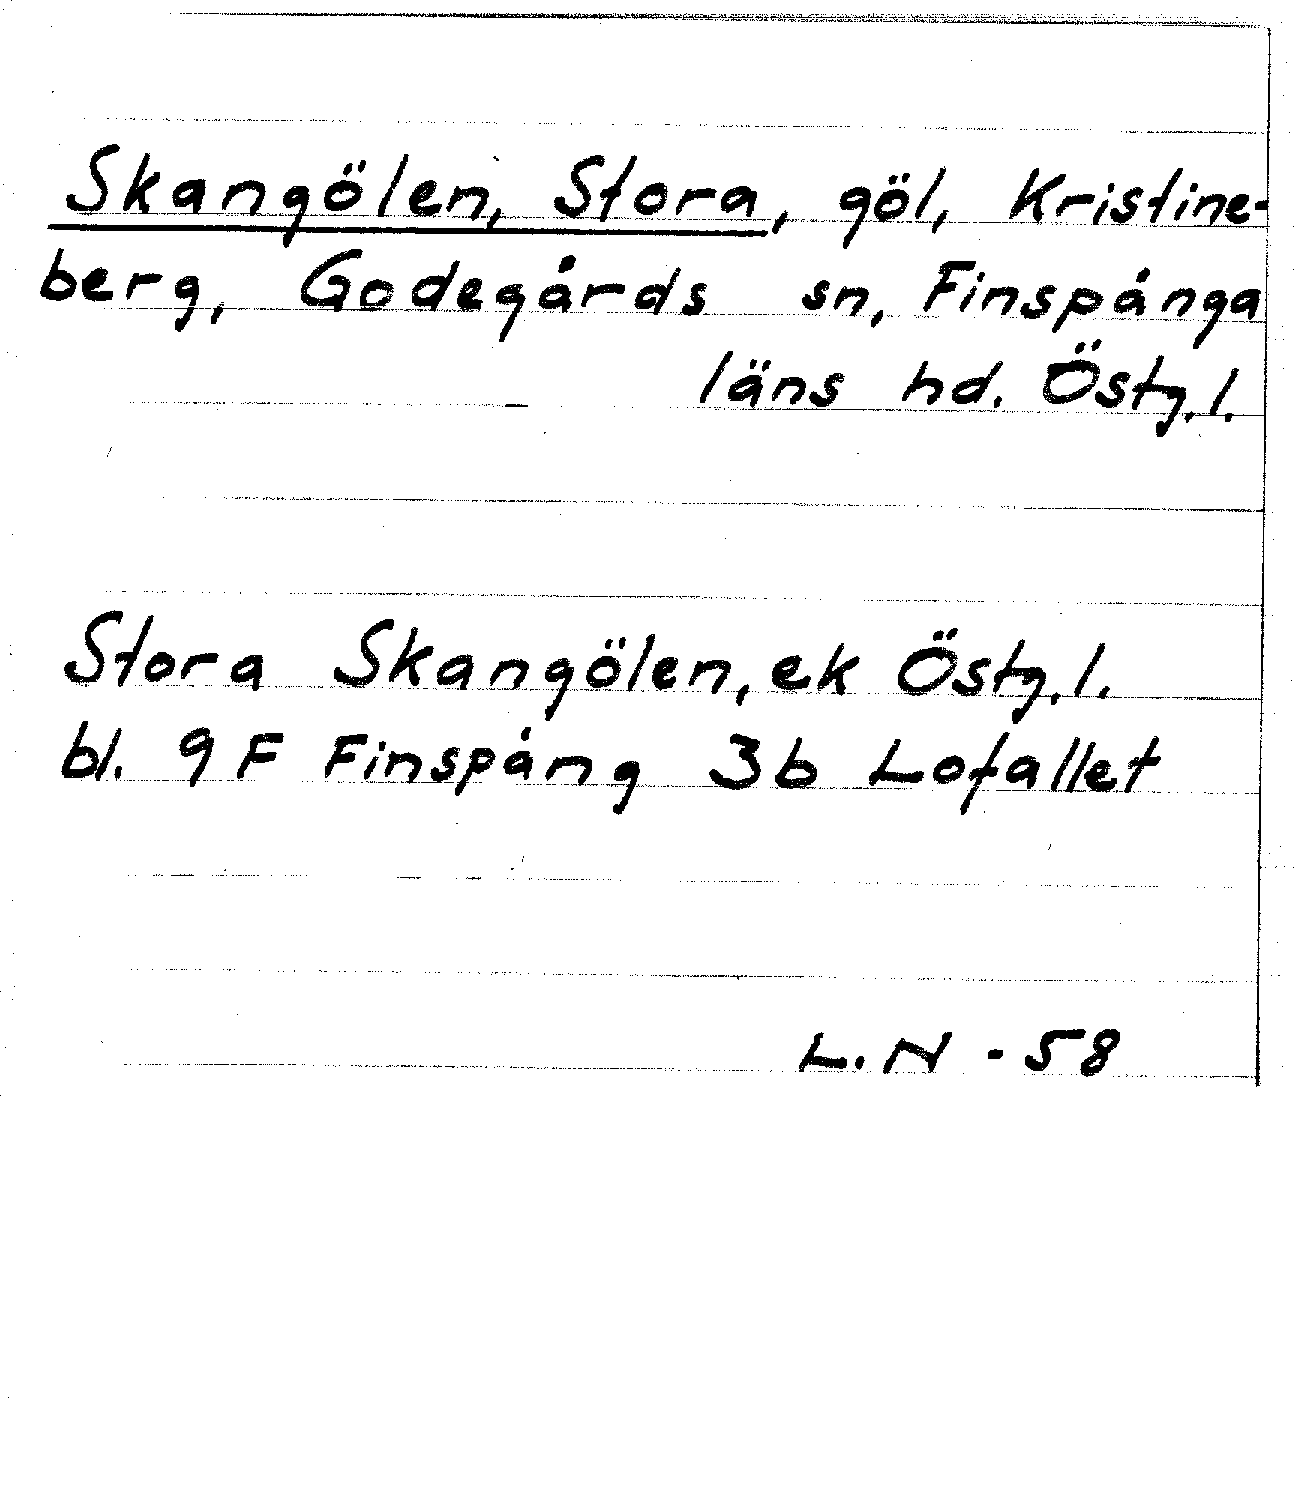 Skangölen, Stora, göl, Kristine-
berg, Godegårds sn, Finspånga
läns hd. Östg.l.
Stora Skangölen, ek Östg.l.
bl. 9F Finspång 3b Lofallet
L.N - 58